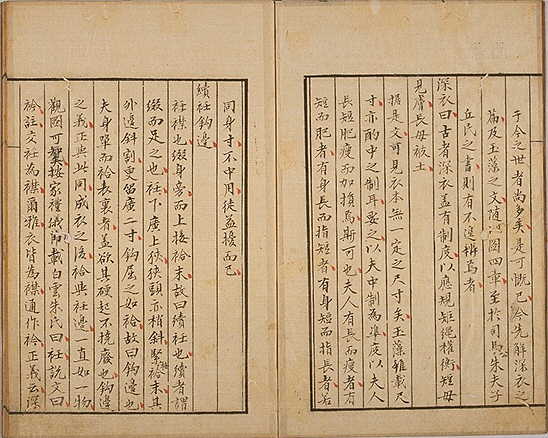 于今之世者尚多矣是可慨已今先解深衣之
篇及玉藻之文随圖四章至於司馬朱夫子
丘氏之書則有不遑辨焉者
深衣曰古者深衣蓋有制度以應規矩繩權衡短毋
見膚長毋被土
據是文可見衣本無一定之尺寸矣玉藻雖載尺
寸亦酌中之制耳要之以夫中制為準度以夫人
長短肥瘦而加損焉斯可也夫人有長而瘦者有
短而肥者有身長而指短者有身短而指長者若
同身寸不中用徒益擾而已
續衽鉤邊
衽襟也綴身旁而上接袷末故曰續衽也續者謂
綴而足之也衽下廣上狹狹頭亦稍斜緊袷末其
外邊斜割更留廣二寸鉤屈之如袷故曰鉤邊也
夫身單而袷表裏者蓋欲其硬起不撓癈也鉤邊
之義正與此同成衣之後袷與衽邊一直如一物
觀圖可按家禮儀節載白雲朱氏曰衽說文曰
衿註交衽為襟爾雅衣皆為襟通作衿正義云深